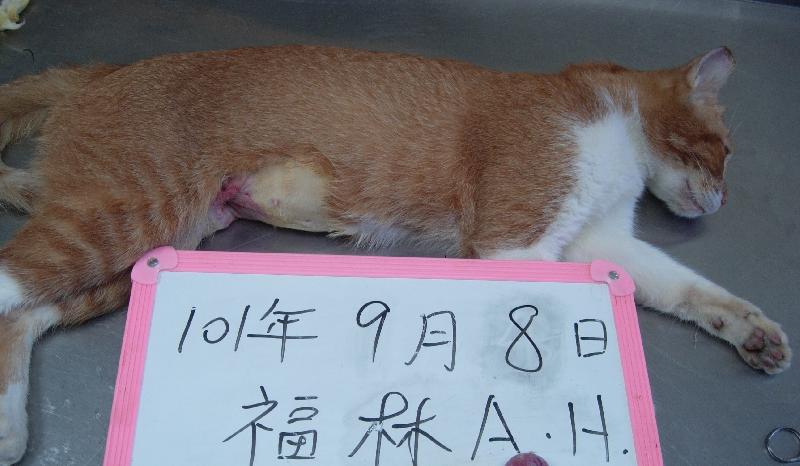 101年 9月 8日
福林 A.H.